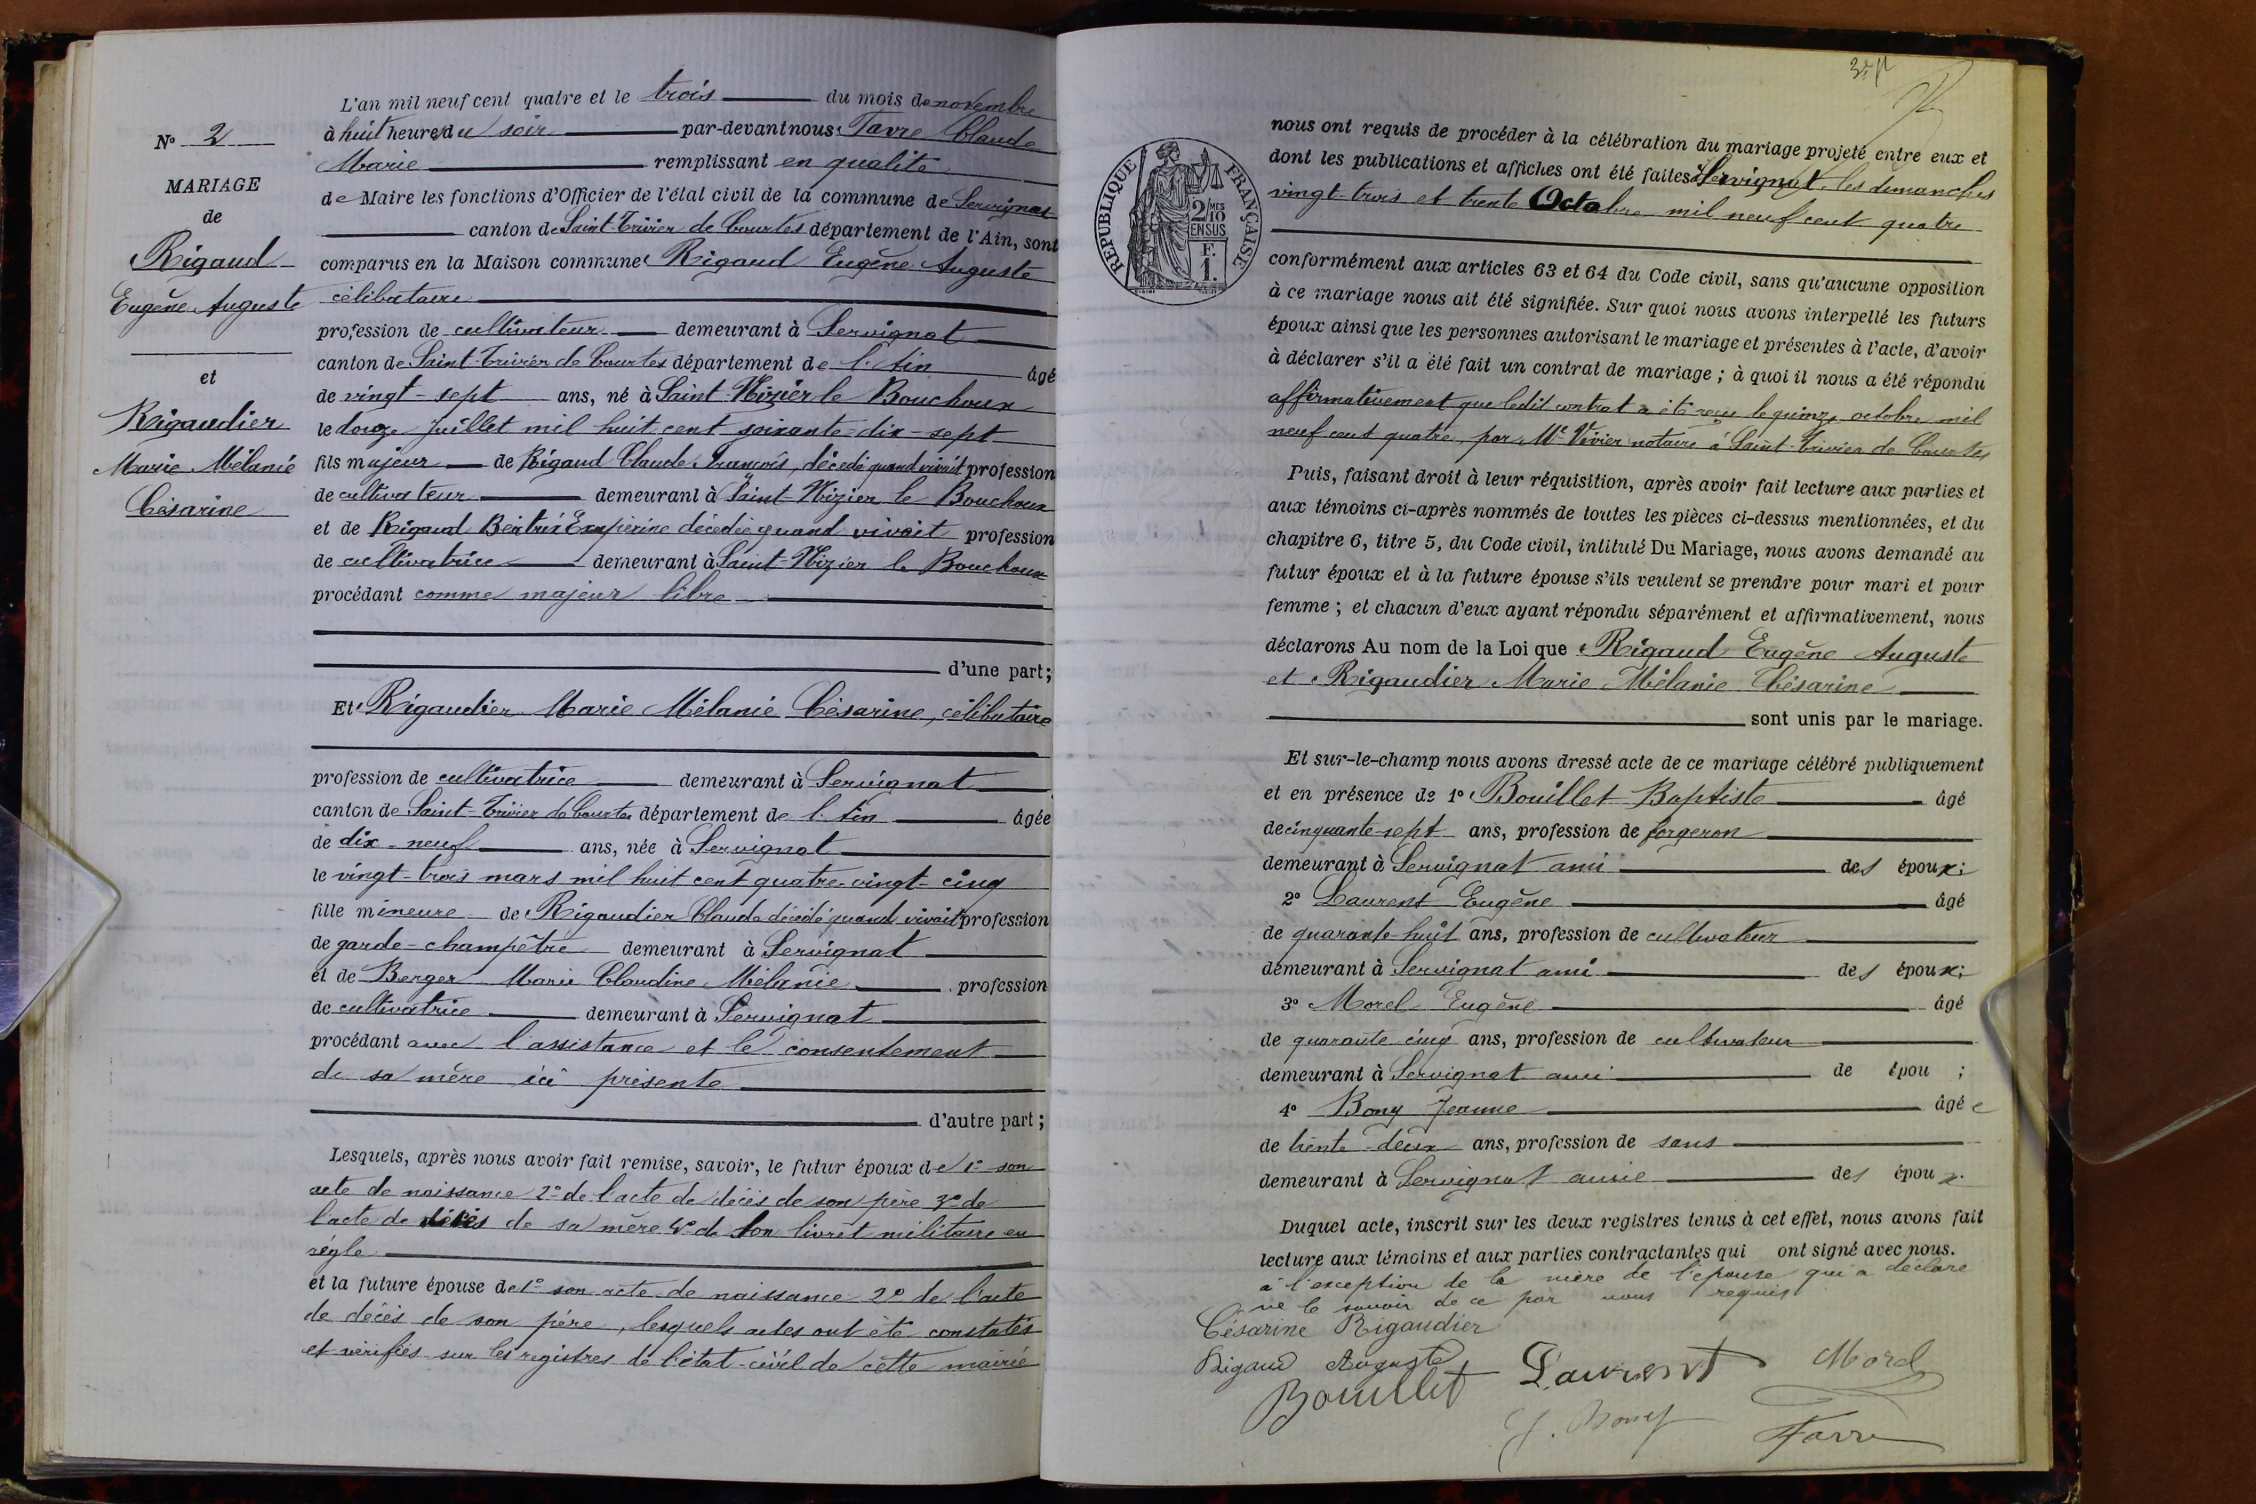 N° 2
MARIAGE
de
Rigaud
Eugène Auguste
et
Rigaudier
Marie Mélanie
Césarine
L'an mil neuf cent quatre et le trois du mois de novembre
à huit heures du soir par-devant nous Favre Claude
Marie remplissant en qualité
de Maire les fonctions d'Officier de l'état civil de la commune de Servignat
canton de Saint-Trivier de Courtes département de l'Ain, sont
comparus en la Maison commune Rigaud Eugène Auguste
célibataire
profession de cultivateur demeurant à Servignat
canton de Saint-Trivier de Courtes département de l'Ain âgé
de vingt-sept ans, né à Saint-Nizier le Bouchoux
le douze juillet mil huit cent soixante-dix-sept
fils majeur de Rigaud Claude François, décédé quand vivait profession
de cultivateur demeurant à Saint-Nizier le Bouchoux
et de Rigaud Béatrix Exupérine décédée quand vivait profession
de cultivatrice demeurant à Saint-Nizier le Bouchoux
procédant comme majeur libre
d'une part;
Et Rigaudier Marie Mélanie Césarine, célibataire
profession de cultivatrice demeurant à Servignat
canton de Saint-Trivier de Courtes département de l'Ain âgée
de dix-neuf ans, née à Servignat
le vingt-trois mars mil huit cent quatre-vingt-cinq
fille mineure de Rigaudier Claude décédé quand vivait profession
de garde-champêtre demeurant à Servignat
et de Berger Marie Claudine Mélanie profession
de cultivatrice demeurant à Servignat
procédant avec l'assistance et le consentement
de sa mère ici présente
d'autre part;
Lesquels, après nous avoir fait remise, savoir, le futur époux de 1° son
acte de naissance 2° de l'acte de décès de son père 3° de
l'acte de décès de sa mère 4° de son livret militaire en
règle
et la future épouse de 1° son acte de naissance 2° de l'acte
de décès de son père, lesquels actes ont été constatés
et vérifiés sur les registres de l'état-civil de cette mairie
RÉPUBLIQUE FRANÇAISE
2/10 MES
EN SUS
F.
1.
nous ont requis de procéder à la célébration du mariage projeté entre eux et
dont les publications et affiches ont été faites à Servignat, les dimanches
vingt-trois et trente Octobre mil neuf cent quatre
conformément aux articles 63 et 64 du Code civil, sans qu'aucune opposition
à ce mariage nous ait été signifiée. Sur quoi nous avons interpellé les futurs
époux ainsi que les personnes autorisant le mariage et présentes à l'acte, d'avoir
à déclarer s'il a été fait un contrat de mariage; à quoi il nous a été répondu
affirmativement que ledit contrat a été reçu le quinze octobre mil
neuf cent quatre par Me Vivier notaire à Saint-Trivier de Courtes
Puis, faisant droit à leur réquisition, après avoir fait lecture aux parties et
aux témoins ci-après nommés de toutes les pièces ci-dessus mentionnées, et du
chapitre 6, titre 5, du Code civil, intitulé Du Mariage, nous avons demandé au
futur époux et à la future épouse s'ils veulent se prendre pour mari et pour
femme; et chacun d'eux ayant répondu séparément et affirmativement, nous
déclarons Au nom de la Loi que Rigaud Eugène Auguste
et Rigaudier Marie Mélanie Césarine
sont unis par le mariage.
Et sur-le-champ nous avons dressé acte de ce mariage célébré publiquement
et en présence de 1° Bouillet Baptiste âgé
de cinquante-sept ans, profession de forgeron
demeurant à Servignat ami des époux;
2° Laurent Eugène âgé
de quarante-huit ans, profession de cultivateur
demeurant à Servignat ami des époux;
3° Morel Eugène âgé
de quarante cinq ans, profession de cultivateur
demeurant à Servignat ami de épou ;
4° Bony Jeanne âgée
de trente-deux ans, profession de sans
demeurant à Servignat amie des époux.
Duquel acte, inscrit sur les deux registres tenus à cet effet, nous avons fait
lecture aux témoins et aux parties contractantes qui ont signé avec nous.
à l'exception de la mère de l'épouse qui a déclaré
ne le savoir de ce par nous requis
Césarine Rigaudier
Rigaud Auguste
Laurent
Morel
Bouillet
J. Bony
Favre